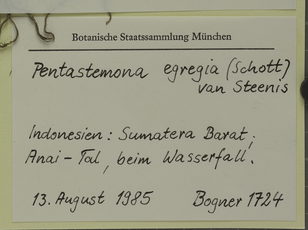 Botanische Staatssammlung München
Pentastemona egregia (Schott)
van Steenis
Indonesien: Sumatera Barat;
Anai-Tal, beim Wasserfall.
13. August 1985 Bogner 1724